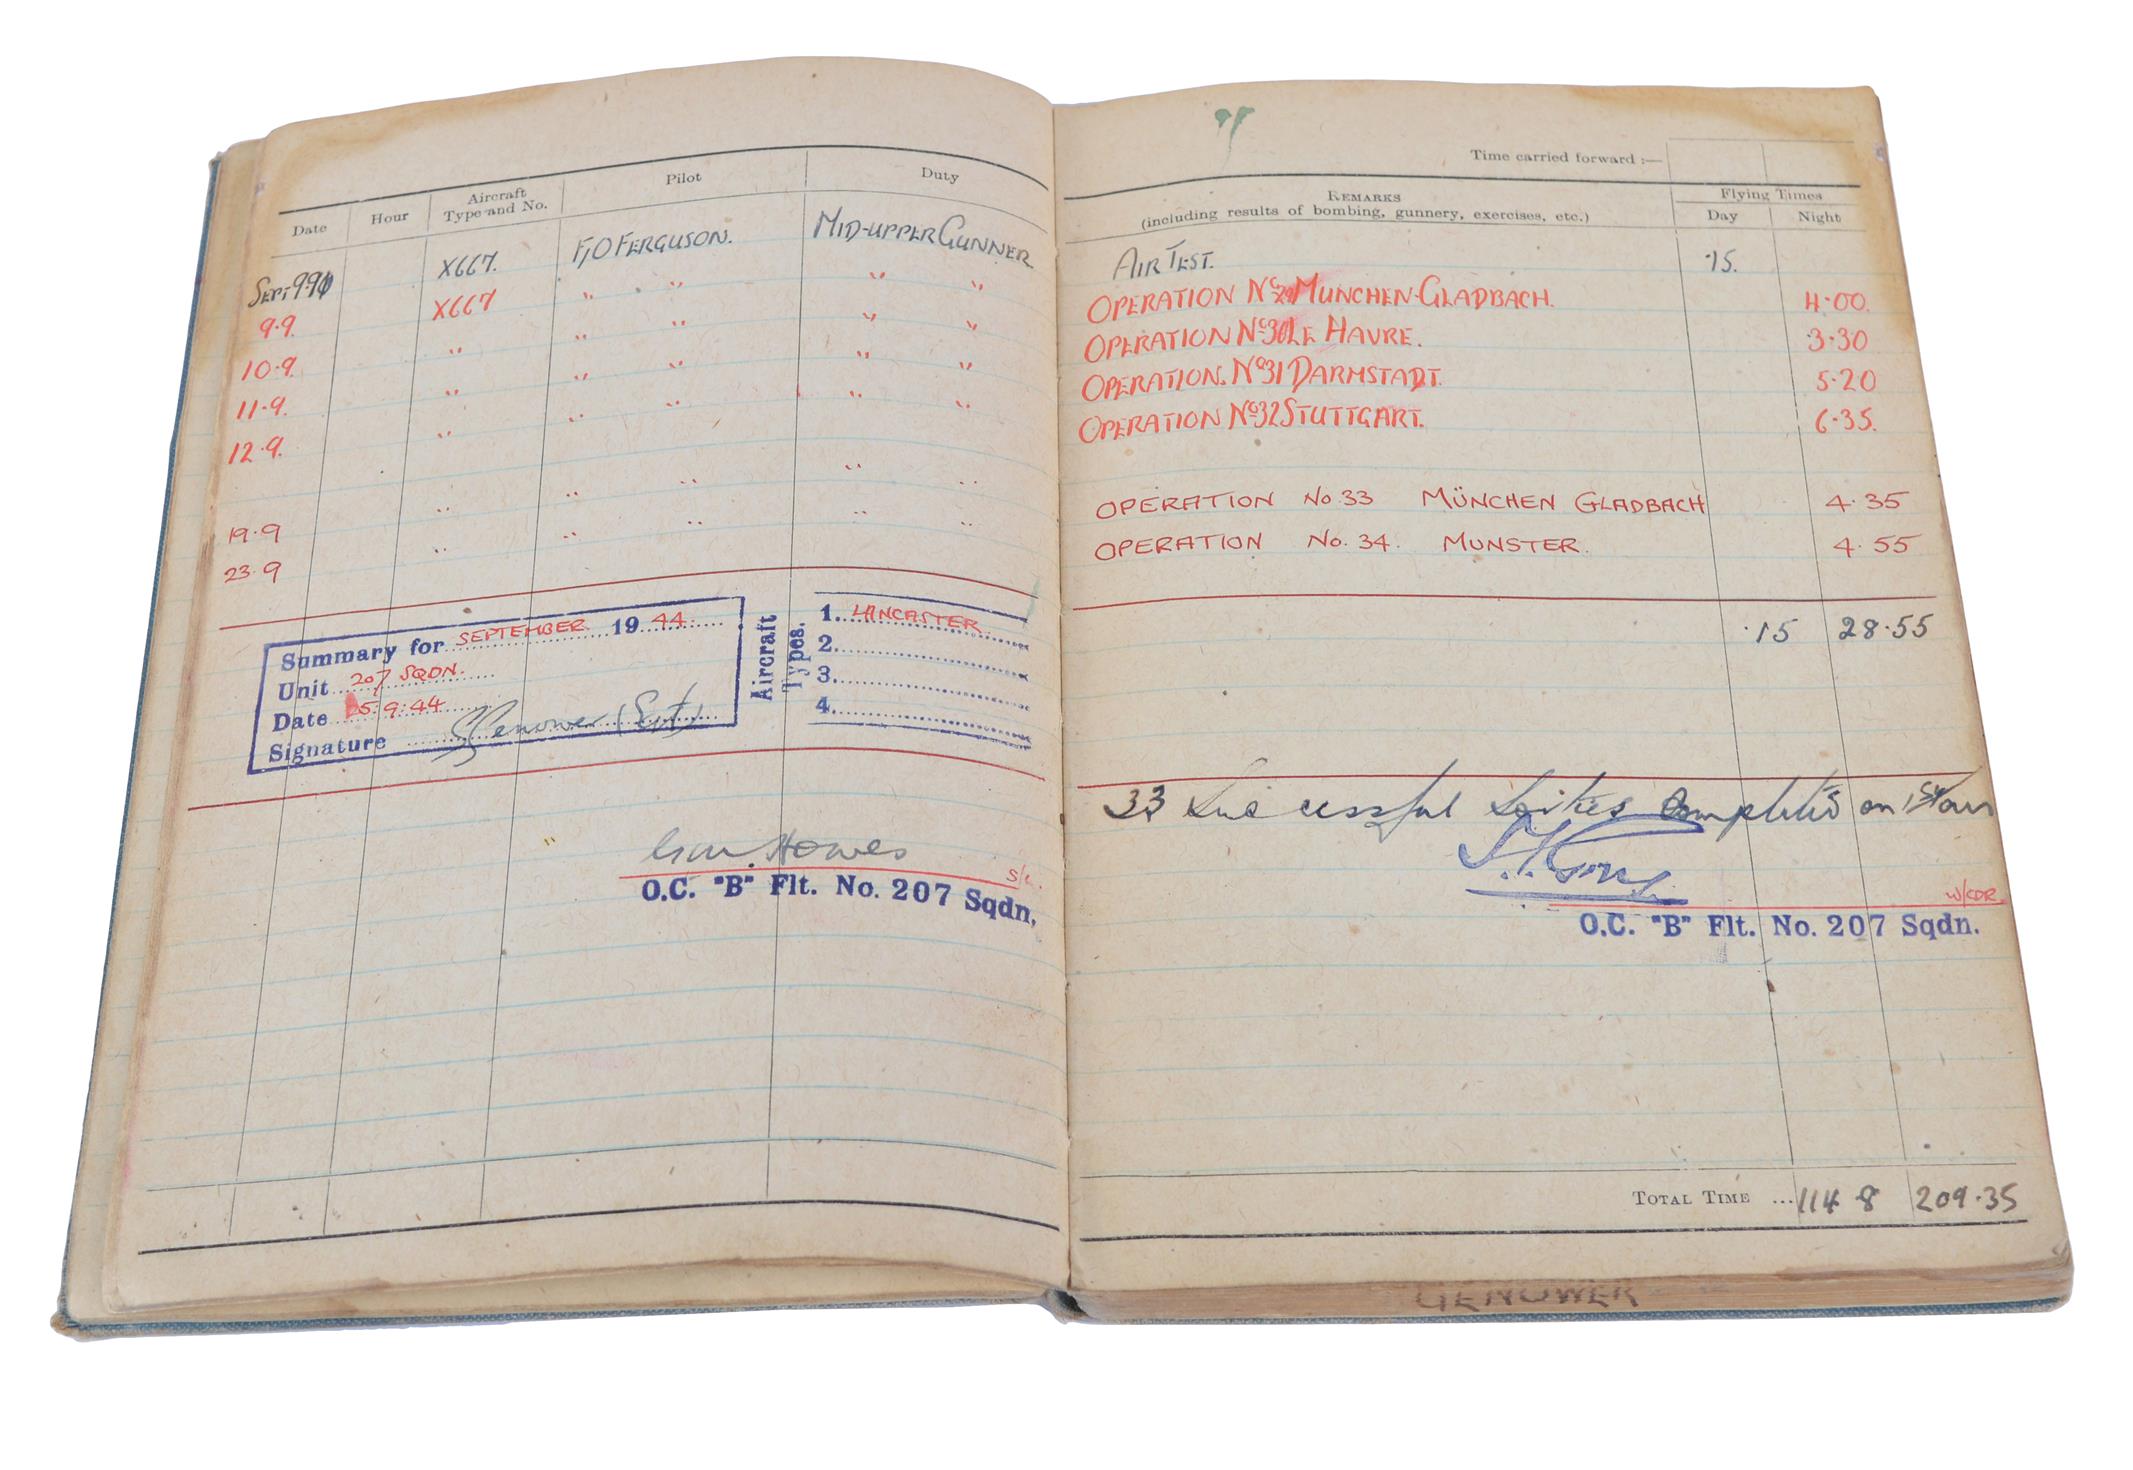 Date Hour Aircraft Type and No. Pilot Duty
Sept 9.9 X667. F/O FERGUSON. MID-UPPER GUNNER.
9.9. X667 " " " "
10.9. " " " " "
11.9. " " " " "
12.9. " " " " "
19.9 " " " " "
23.9 " " " " "
Summary for SEPTEMBER 1944
Unit 207 SQDN.
Date 5.9.44
Signature SGenower (Sgt)
Aircraft Types.
1. LANCASTER
2.
3.
4.
Howes
S/L.
O.C. "B" Flt. No. 207 Sqdn.
Time carried forward :—
REMARKS
(including results of bombing, gunnery, exercises, etc.)
Flying Times
Day Night
AIR TEST. .15.
OPERATION No. 29 MUNCHEN-GLADBACH. 4.00.
OPERATION No. 30 LE HAVRE. 3.30
OPERATION. No. 31 DARMSTADT. 5.20
OPERATION No. 32 STUTTGART. 6.35.
OPERATION No 33 MÜNCHEN GLADBACH 4.35
OPERATION No. 34. MUNSTER. 4.55
.15 28.55
33 Successful Sorties Completed on 1st Tour
W/CDR.
O.C. "B" Flt. No. 207 Sqdn.
TOTAL TIME ... 114 8 209.35
GENOWER